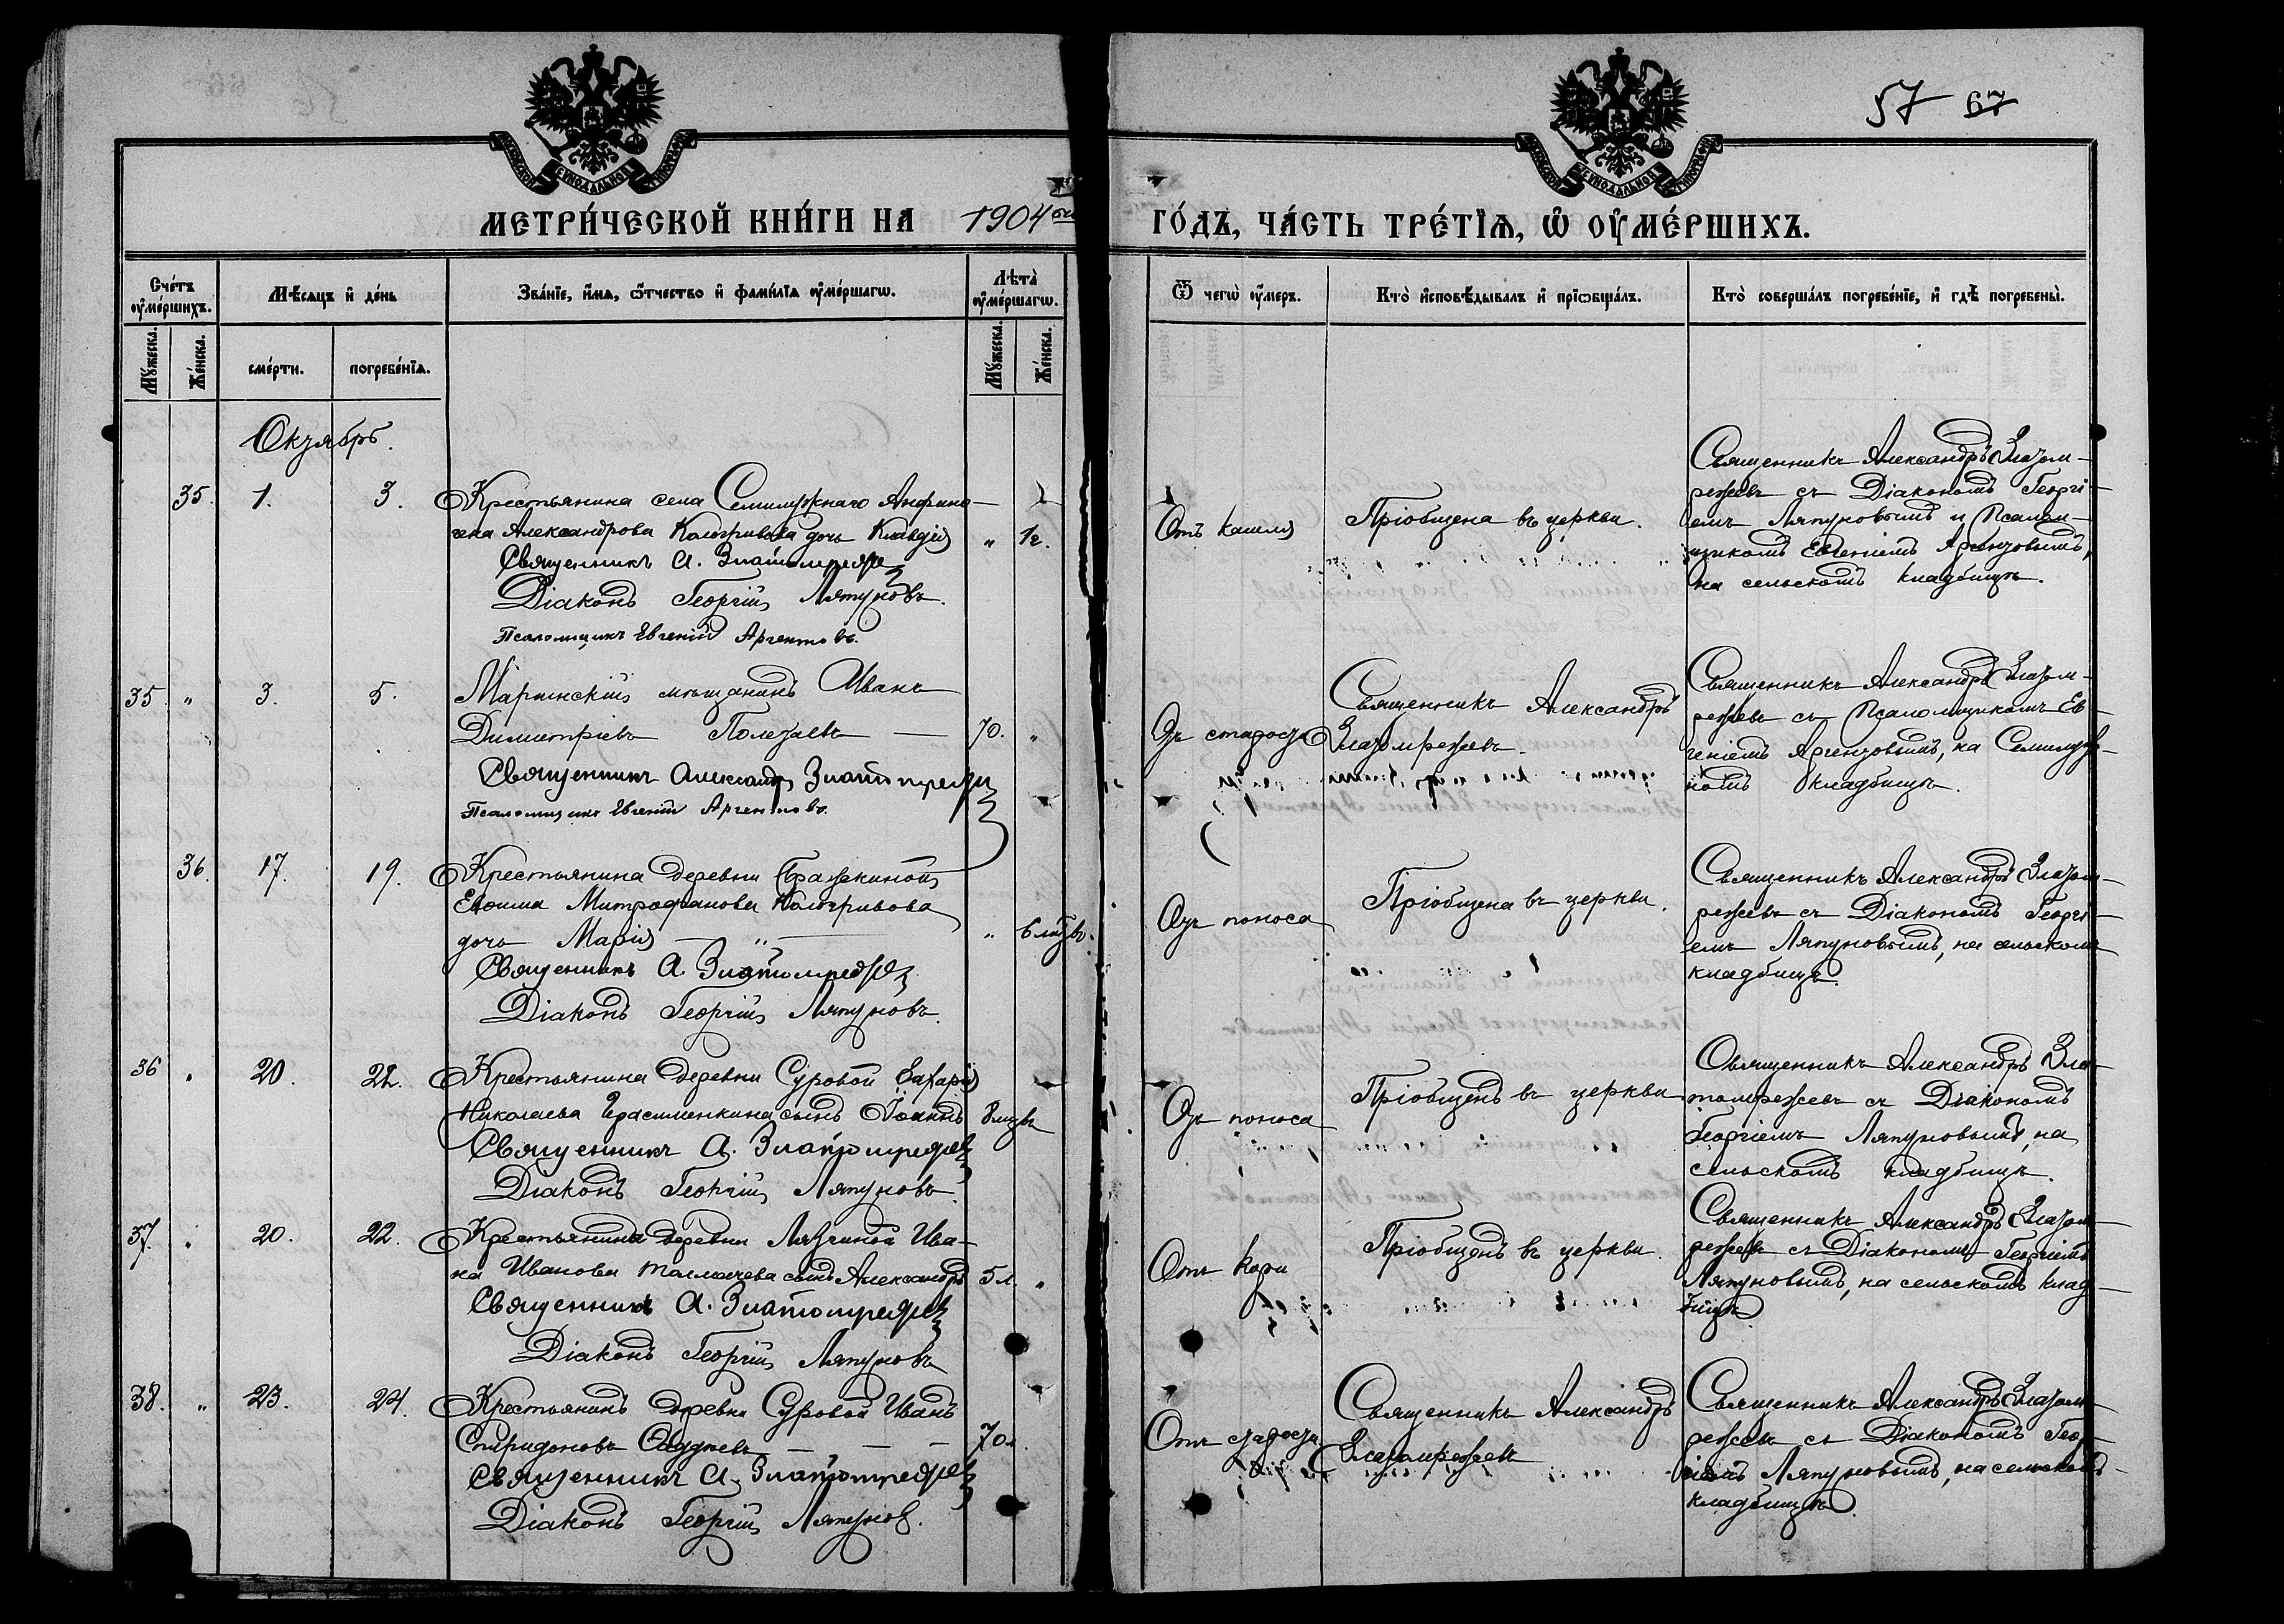 57 67
МОСКОВСКОЙ СѴНОДАЛЬНОЙ ТИПОГРАФІИ
МОСКОВСКОЙ СѴНОДАЛЬНОЙ ТИПОГРАФІИ
МЕТРИ́ЧЕСКОЙ КНИ́ГИ НА 1904
ГО́ДЪ, ЧА́СТЬ ТРЕ́ТЇѦ, Ѡ҆ ОУ҆МЕ́РШИХЪ.
Сче́тъ оу҆ме́ршихъ.
Мѣ́сяцъ и҆ де́нь
Зва́нїе, и҆́мѧ, ѻ҆́тчество и҆ фами́лїѧ оу҆ме́ршагѡ.
Лѣ́та̀ оу҆ме́ршагѡ.
Ѿ чегѡ̀ оу҆́меръ.
Кто̀ и҆сповѣ́дывалъ и҆ прїѡбща́лъ.
Кто̀ соверша́лъ погребе́нїе, и҆ гдѣ̀ погребены̀.
Мꙋ́жеска.
Же́нска.
сме́рти.
погребе́нїѧ.
Мꙋ́жеска.
Же́нска.
Октябрь.
35. 1. 3.
Крестьянина села Семилужнаго Анфино-
гена Александрова Кологривова дочь Клавдія „ 1 г.
Священникъ А. Златомрежев
Діаконъ Георгій Ляпуновъ.
Псаломщикъ Евгеній Аргентовъ.
Отъ кашля
Пріобщена въ церкви.
Священникъ Александръ Златом-
режевъ съ Діакономъ Георгі-
емъ Ляпуновымъ и Псалом-
щикомъ Евгеніемъ Аргентовымъ,
на сельскомъ кладбищѣ.
35 „ 3. 5.
Маріинскій мѣщанинъ Иванъ
Димитріевъ Полезаевъ — 70. „
Священникъ Александръ Златомрежев
Псаломщикъ Евгеній Аргентовъ.
Отъ старости
Священникъ Александръ
Златомрежевъ.
Священникъ Александръ Златом-
режевъ съ Псаломщикомъ Ев-
геніемъ Аргентовымъ, на Семилуж-
номъ кладбищѣ.
36. 17. 19.
Крестьянина деревни Бражкиной
Евѳима Митрофанова Кологривова
дочь Марія — „ — „ 6 мѣсв.
Священникъ А. Златомрежев
Діаконъ Георгій Ляпуновъ.
Отъ поноса
Пріобщена въ церкви.
Священникъ Александръ Златом-
режевъ съ Діакономъ Георгі-
емъ Ляпуновымъ, на сельскомъ
кладбищѣ.
36 „ 20. 22.
Крестьянина деревни Суровой Захарія
Николаева Герасименкина сынъ Іоаннъ 8 мѣсв
Священникъ А. Златомрежев
Діаконъ Георгій Ляпуновъ.
Отъ поноса
Пріобщенъ въ церкви
Священникъ Александръ Зла-
томрежевъ съ Діакономъ
Георгіемъ Ляпуновымъ, на
сельскомъ кладбищѣ.
37. „ 20. 22.
Крестьянина деревни Лязгиной Ива-
на Иванова Толмачева сынъ Александръ 5 л. „
Священникъ А. Златомрежев
Діаконъ Георгій Ляпуновъ
Отъ кори
Пріобщенъ въ церкви.
Священникъ Александръ Златом-
режевъ съ Діакономъ Георгіемъ
Ляпуновымъ, на сельскомъ клад-
бищѣ
38. „ 23. 24.
Крестьянинъ деревни Суровой Иванъ
Спиридоновъ — — — 70 л.
Священникъ А. Златомрежев
Діаконъ Георгій Ляпунов.
Отъ старости
Священникъ Александръ
Златомрежевъ
Священникъ Александръ Златом-
режевъ съ Діакономъ Геор-
гіемъ Ляпуновымъ, на сельскомъ
кладбищѣ.